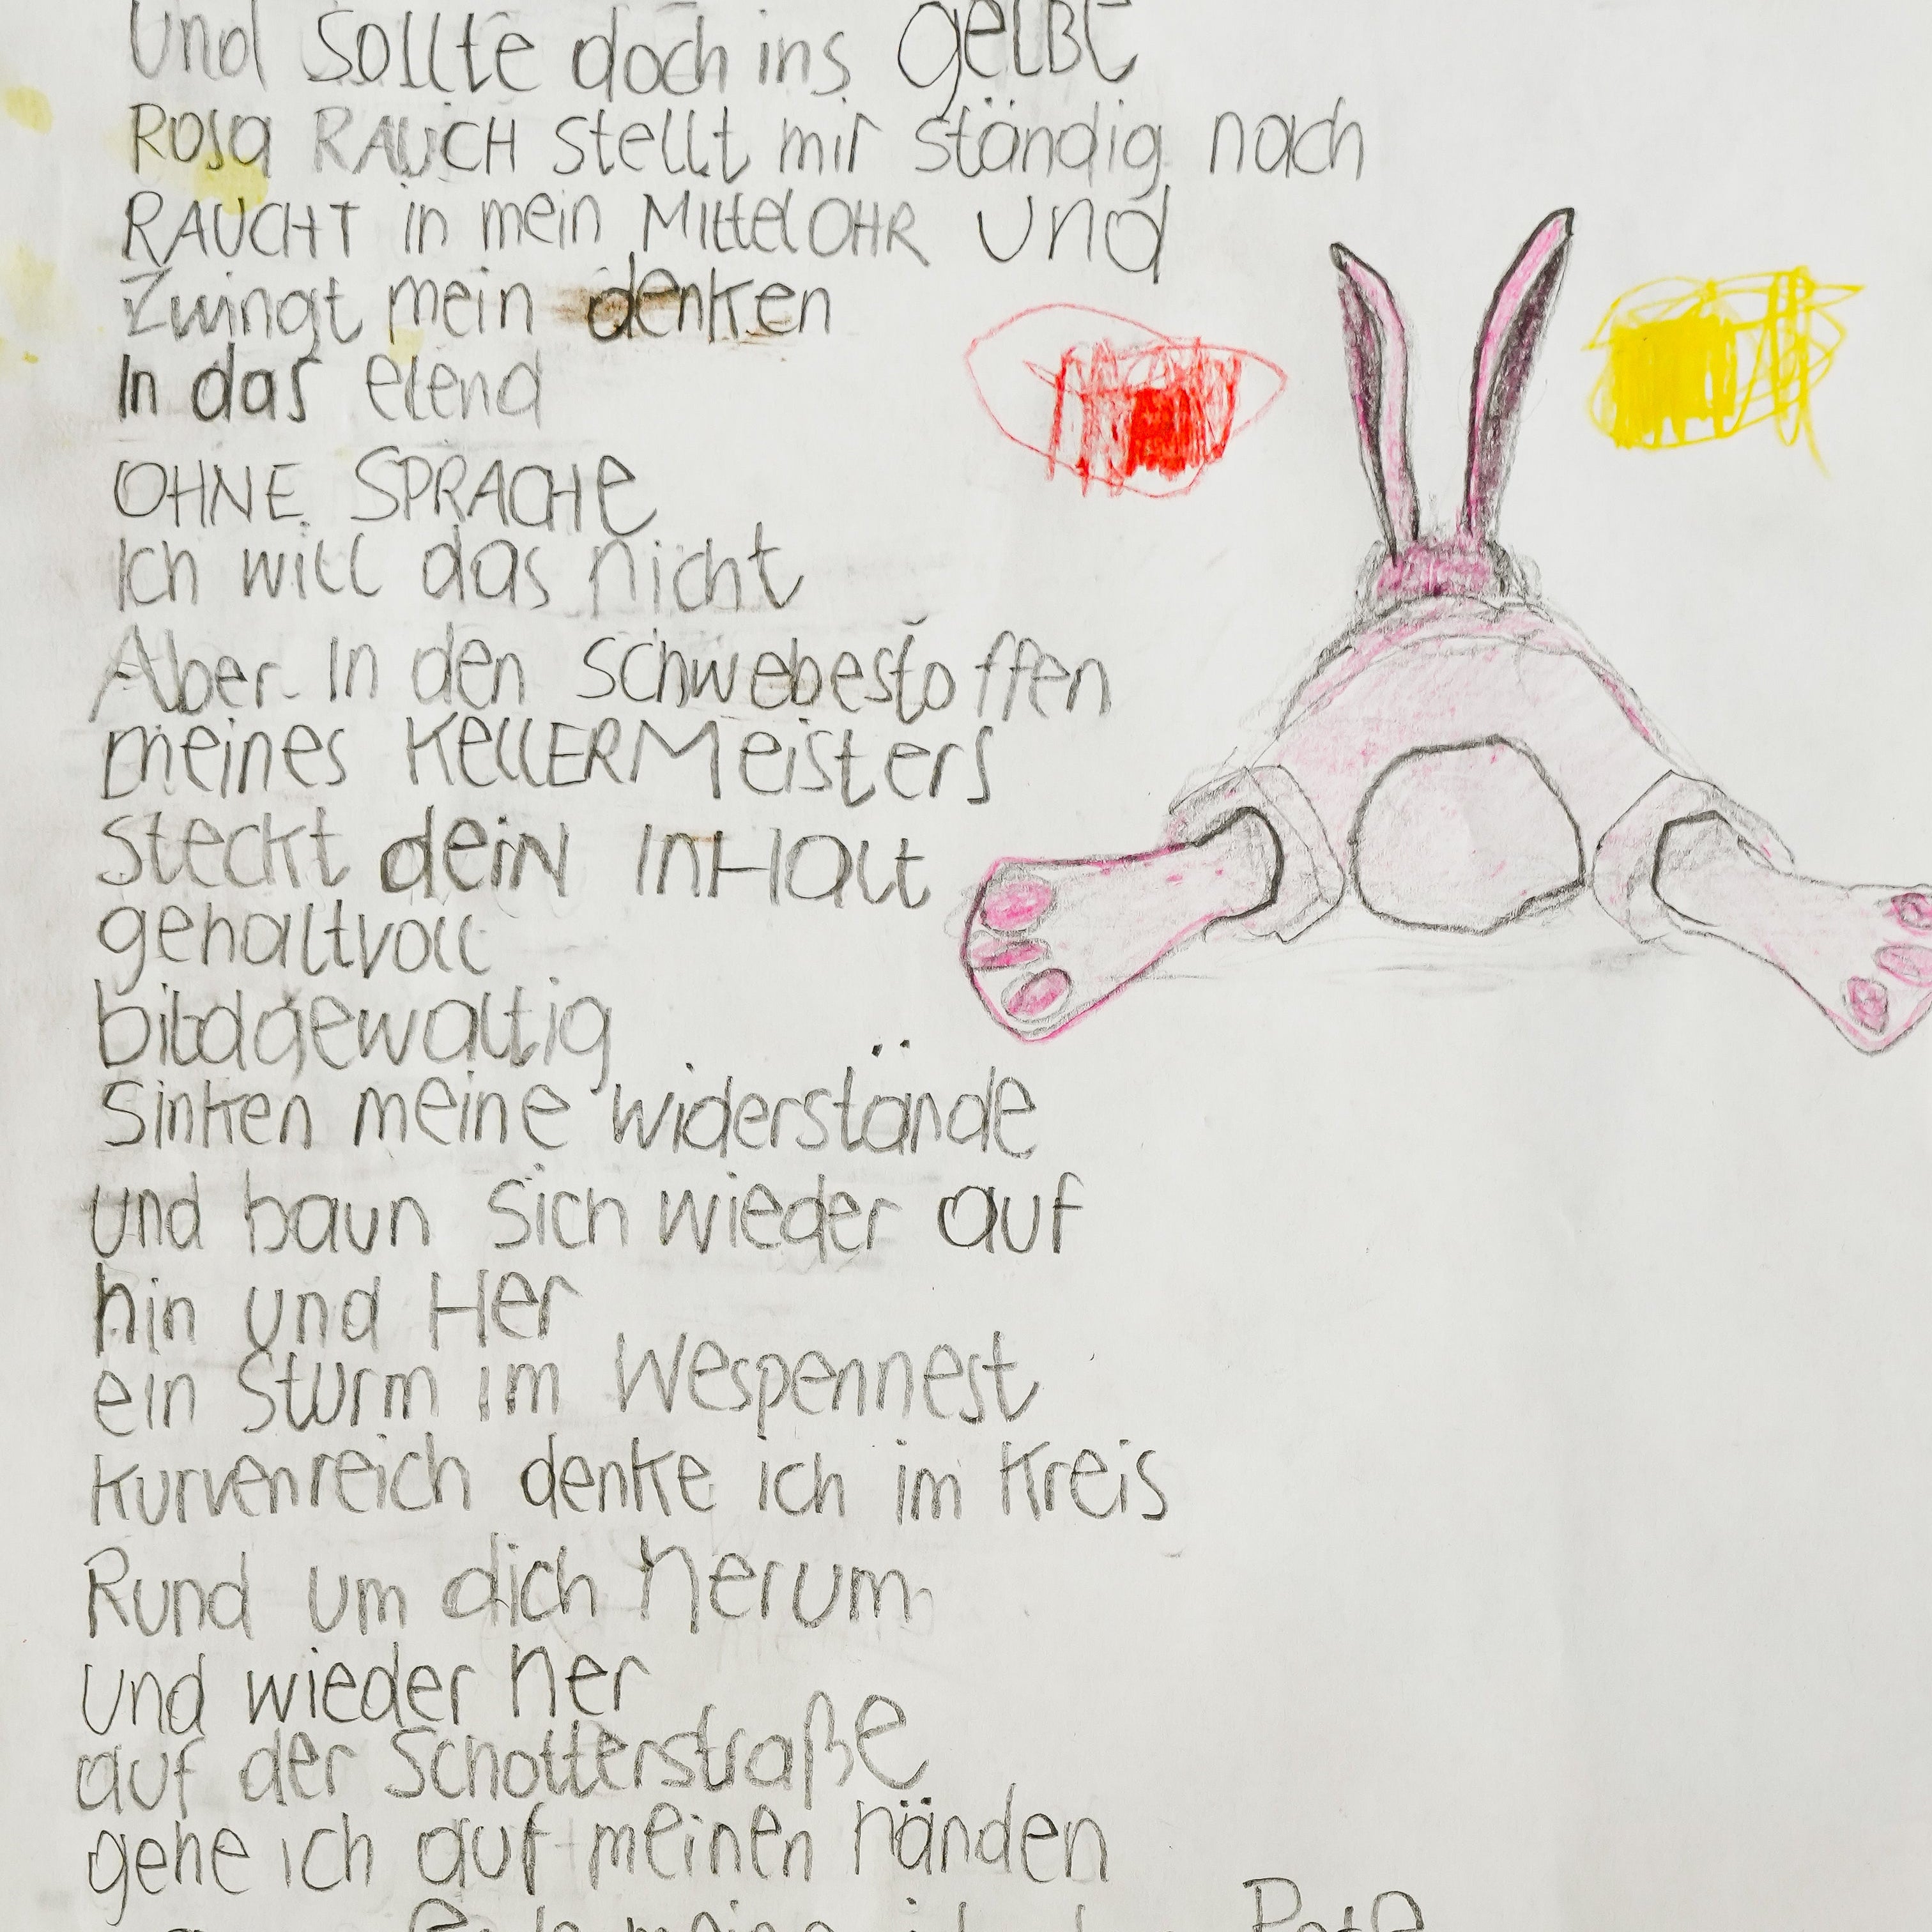 Und sollte doch ins gelbe
Rosa RAUCH stellt mir ständig nach
RAUCHT in mein MittelOHR und
Zwingt mein denken
In das elend
OHNE SPRACHe
Ich will das nicht
Aber in den schwebestoffen
meines KellERMeisters
steckt deiN InHalt
gehaltvoll
bildgewaltig
Sinken meine widerstände
und baun sich wieder auf
hin und Her
ein Sturm im Wespennest
kurvenreich denke ich im Kreis
Rund um dich herum
und wieder her
auf der Schotterstraße
gehe ich auf meinen händen